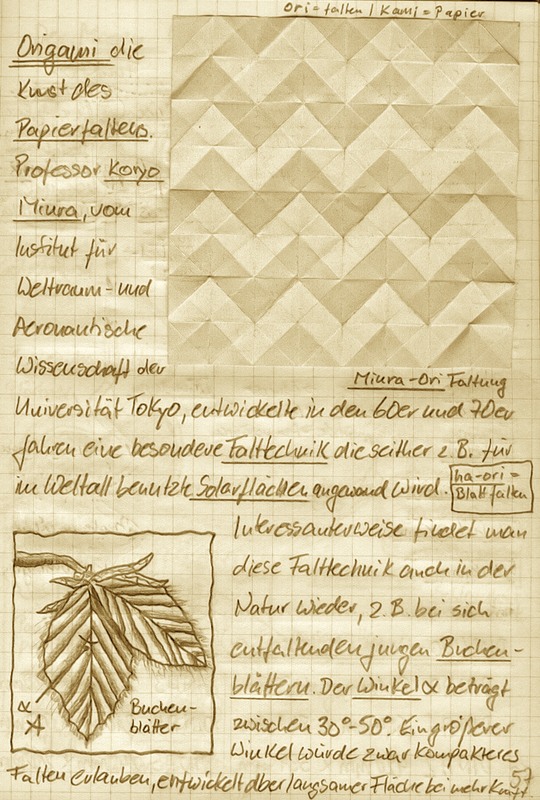 Ori = falten / Kami = Papier
Origami die
Kunst des
Papierfaltens.
Professor Koryo
Miura, vom
Institut für
Weltraum- und
Aeronautische
Wissenschaft der
Miura-Ori Faltung
Universität Tokyo, entwickelte in den 60er und 70er
Jahren eine besondere Falttechnik die seither z.B. für
im Weltall benutzte Solarflächen angewand wird.
ha-ori =
Blattfalten
Interessanterweise findet man
diese Falttechnik auch in der
Natur wieder, z.B. bei sich
entfaltenden jungen Buchen-
blättern. Der Winkel α beträgt
zwischen 30°-50°. Ein größerer
Winkel würde zwar kompakteres
Falten erlauben, entwickelt aber langsamer Fläche bei mehr Kraft.
α
Buchen-
blätter
57